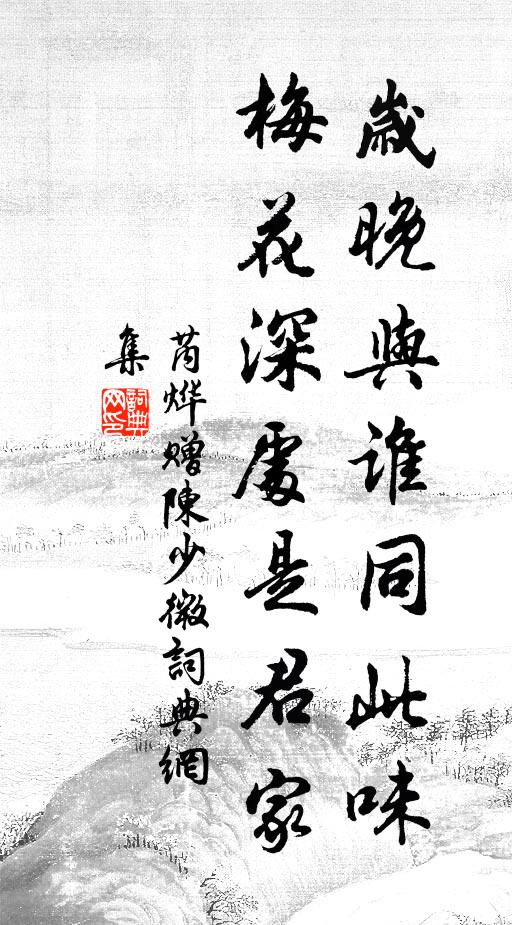 歲晚與誰同此味
梅花深處是君家
芮燁贈陳少微詞典網
集
詞典
网印